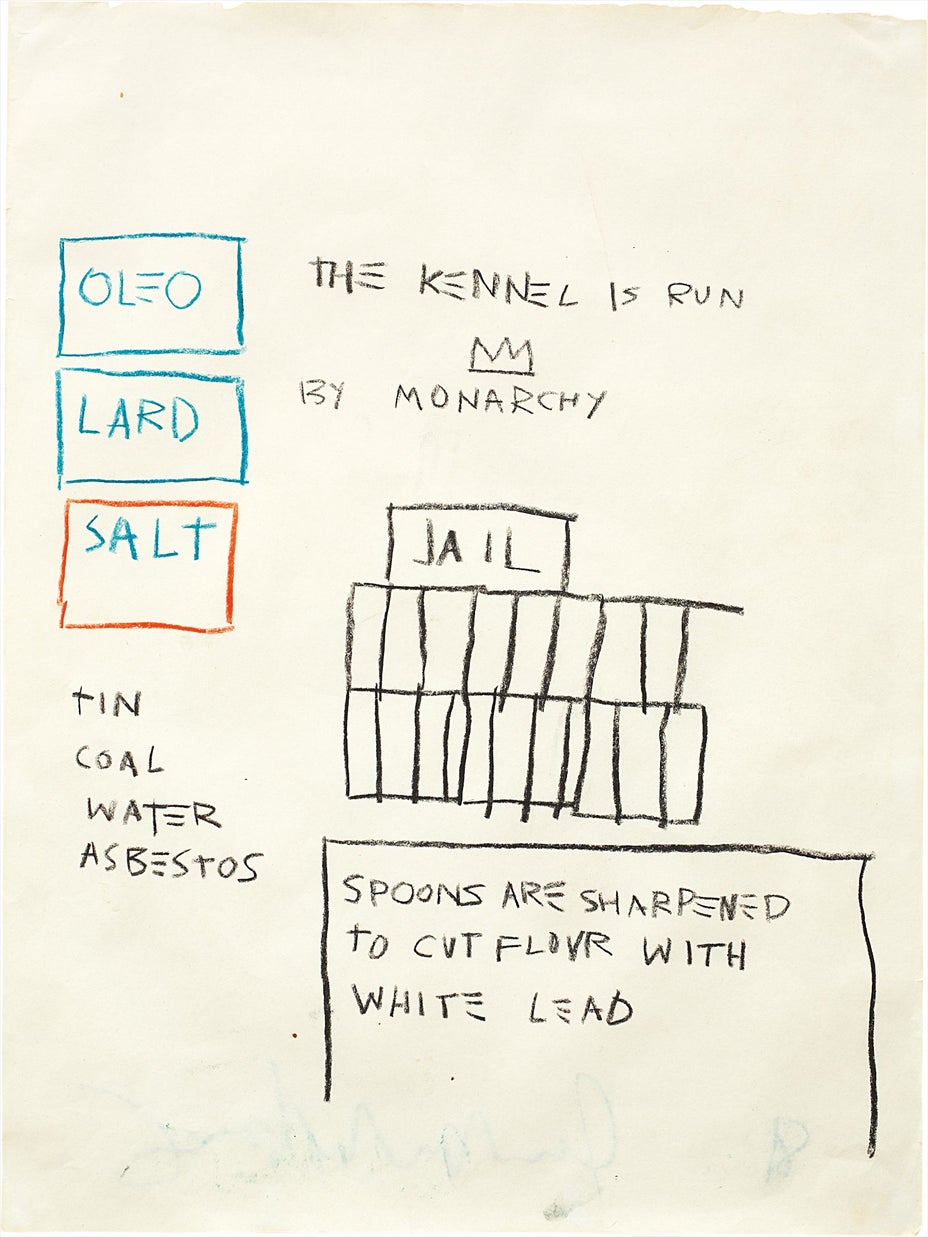 OLEO
LARD
SALT
THE KENNEL IS RUN
BY MONARCHY
JAIL
TIN
COAL
WATER
ASBESTOS
SPOONS ARE SHARPENED
TO CUT FLOUR WITH
WHITE LEAD